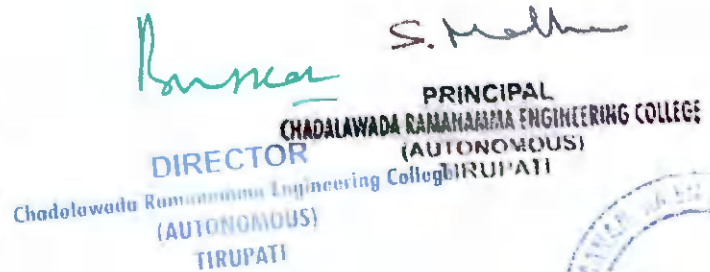 S. Madhu
PRINCIPAL
CHADALAWADA RAMANAMMA ENGINEERING COLLEGE
(AUTONOMOUS)
TIRUPATI
DIRECTOR
Chadalawada Ramanamma Engineering College
(AUTONOMOUS)
TIRUPATI